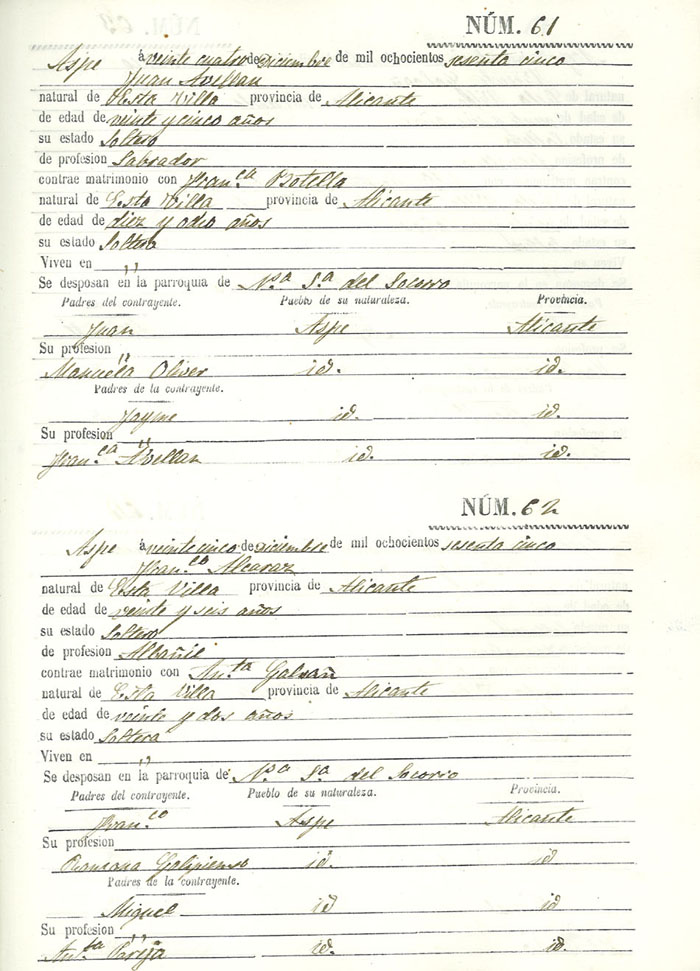 NÚM. 61
Aspe á veinte cuatro de Diciembre de mil ochocientos sesenta cinco
Juan Avellan
natural de Esta Villa provincia de Alicante
de edad de veinte y cinco años
su estado Soltero
de profesion Labrador
contrae matrimonio con Fran.ca Botella
natural de Esta Villa provincia de Alicante
de edad de diez y ocho años
su estado Soltera
Viven en ,,
Se desposan en la parroquia de Nª Sª del Socorro
Padres del contrayente. Pueblo de su naturaleza. Provincia.
Juan Aspe Alicante
Su profesion ,,
Manuela Oliver id. id.
Padres de la contrayente.
Jayme id. id.
Su profesion ,,
Fran.ca Avellan id. id.
NÚM. 62
Aspe á veinte cinco de Diciembre de mil ochocientos sesenta cinco
Fran.co Alcaraz
natural de Esta Villa provincia de Alicante
de edad de veinte y seis años
su estado Soltero
de profesion Albañil
contrae matrimonio con An.ta Galvañ
natural de Esta Villa provincia de Alicante
de edad de veinte y dos años
su estado Soltera
Viven en ,,
Se desposan en la parroquia de Nª Sª del Socorro
Padres del contrayente. Pueblo de su naturaleza. Provincia.
Fran.co Aspe Alicante
Su profesion
id. id
Padres de la contrayente.
Miguel id id
Su profesion
An.ta Pareja id. id.